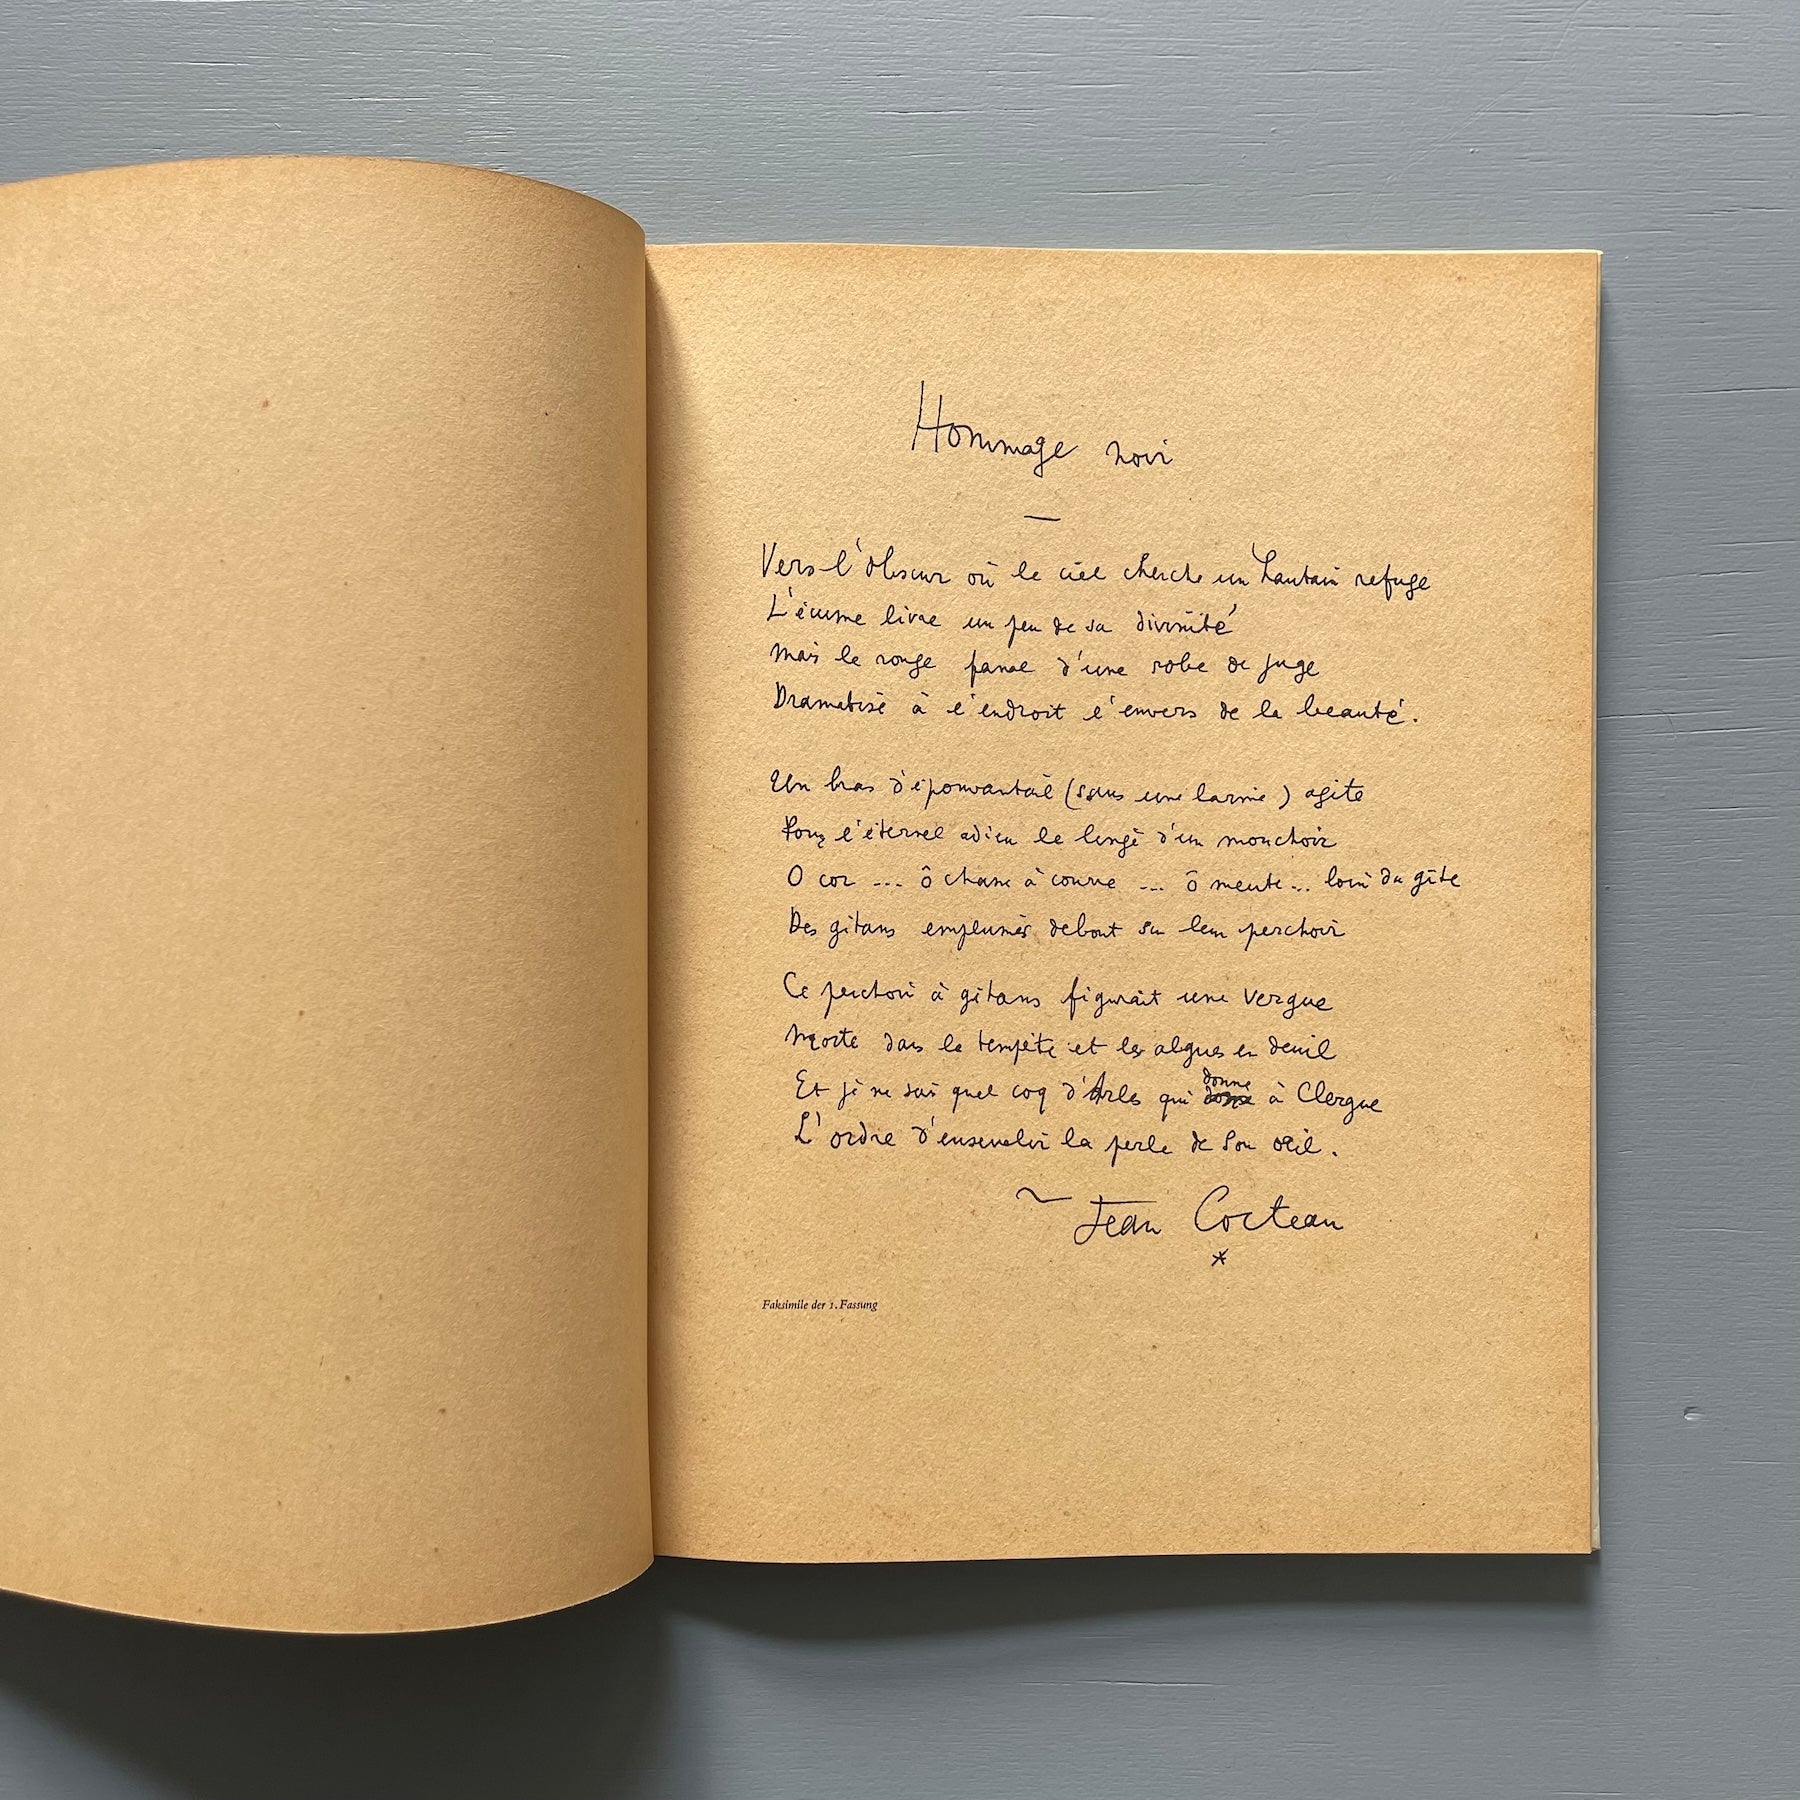 Hommage noir
Vers l'obscur où le ciel cherche un hautain refuge
L'écume livre un peu de sa divinité
Mais le rouge panae d'une robe de juge
Dramatise à l'endroit l'envers de la beauté.
Un bras d'épouvantail (sans une larme) agite
Pour l'éternel adieu le linge d'un mouchoir
O cor ... ô chasse à courre ... ô meute ... loin du gîte
Des gitans emplumés debout sur leur perchoir
Ce perchoir à gitans figurait une vergue
Morte dans la tempête et les algues en deuil
Et je ne sais quel coq d'Arles qui donne à Clergue
L'ordre d'ensevelir la perle de son œil.
Jean Cocteau
*
Faksimile der 1. Fassung